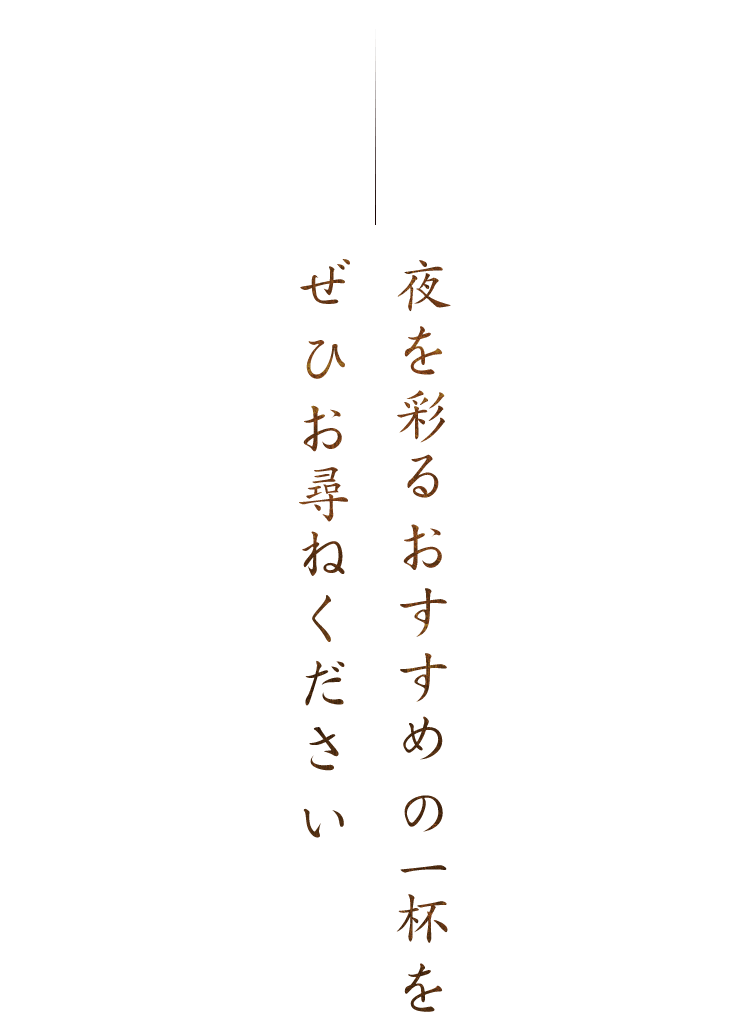 夜を彩るおすすめの一杯を
ぜひお尋ねください